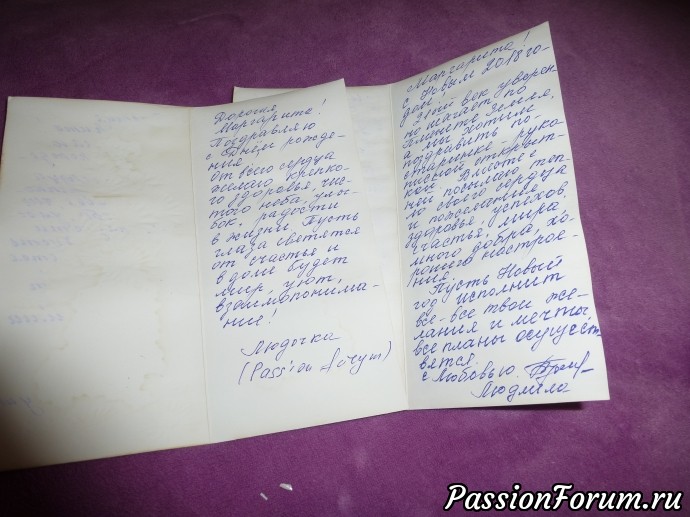 Дорогая
Маргарита!
Поздравляю
с Днём рожде-
ния!
От всего сердца
желаю крепко-
го здоровья, чис-
того неба, улы-
бок, радости
в жизни. Пусть
глаза светятся
от счастья и
в доме будет
мир, уют,
взаимопонима-
ние!
Людочка
(Passion Форум)
Маргарита!
с Новым 2018 го-
дом!
21ый век уверен-
но шагает по
планете Земля,
а мы хотим
поздравить по-
старинке - руко-
писной открыт-
кой. Вместе с
ней посылаю теп-
ло своего сердца
и пожелания
здоровья, успехов
счастья, мира
много добра, хо-
рошего настрое-
ния.
Пусть Новый
год исполнит
все-все твои же-
лания и мечты,
все планы осущест
вятся.
с Любовью
Людмила
PassionForum.ru